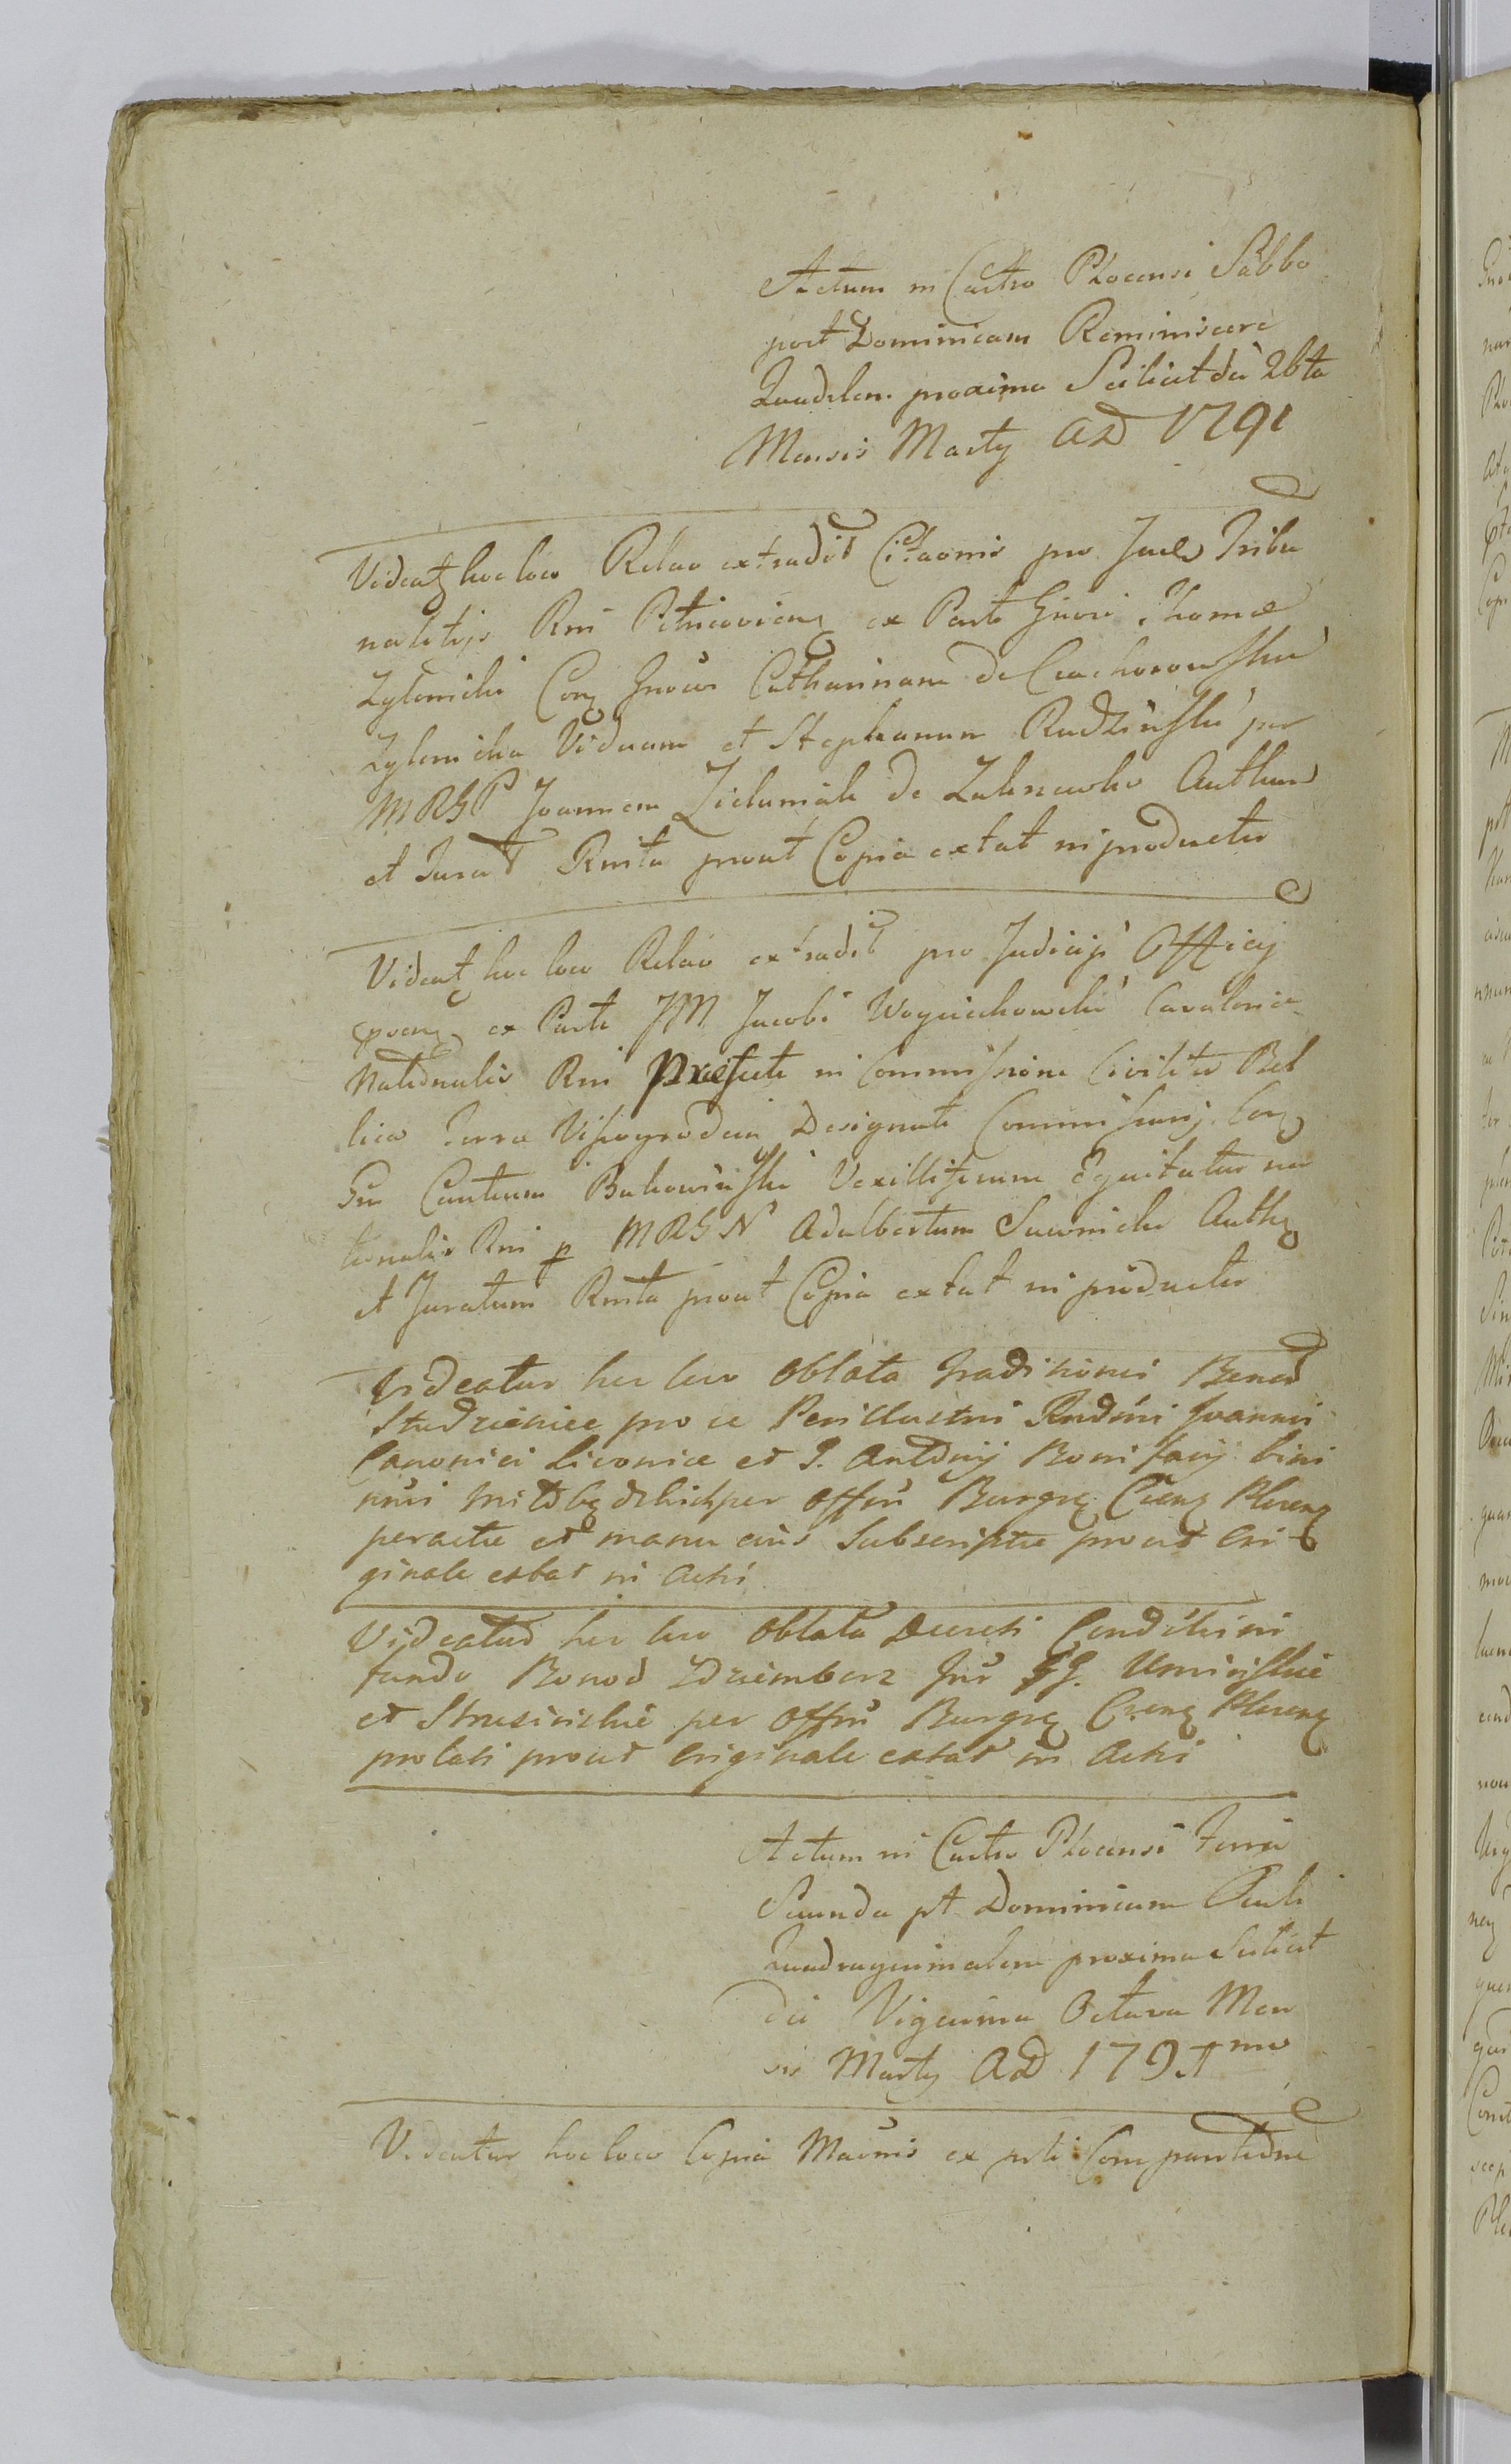 Actum in Castro Plocensi Sabbo
post Dominicam Reminiscere
Quadrlem. proxima Scilicet die 26ta
Mensis Martij AD 1791
Videatz hoc loco Relao extradit Citaonis pro Jud Tribu
nalitijs Rni Petricovienz ex Parte Gnosi Thomæ
Zglenicki Conz Gnosas Catharinam de Ciachorowskie
Zglenicka Viduam et Stephanum Rudziński per
MRGP Joannem Zieluniak de Zalszewko Authen
et Jurat Rnita prout Copia extat in producto
Videatz hoc loco Relao extradit pro Judicijs Officij
Plocenz ex Parte JM Jacobi Woyciechowski Cavaleriæ
Nationalis Rni Præfecti in Commissione Civilito Bel
lica Terræ Visogrodien Designati Commissarij Conz
Gn Cantium Bukowiński Vexilliferum Equitatus na
tionalis Rni p MRGN Adalbertum Suwnicki Authz
et Juratum Rnita prout Copia extat in producto
Videatur hoc loco Oblata Traditionis Bonor
Studzieniec pro ce Perillustri Rndmi Joannis
Canonici Livoniæ et G. Antonij Bonifacij bini
nris per Offm Burgrz Crenz Plocenz
peractæ et manu eius Subscriptæ prout Ori-
ginale extat in Actis
Videatur hoc loco Oblata Decreti Condictisini
fundo Bonor Zdziembórz Jnr GG. Uminiskie
et Strusinskie per Offm Burgrz Crenz Plocenz
prolati prout Originale extat in Actis
Actum in Castro Plocensi Feria
Secunda pt Dominicam Oculi
Quadragesimalem proxima Scilicet
die Vigesima Octava Men
sis Martij AD 1791mo
Videatur hoc loco Copia Maonis ex prti Comparitione